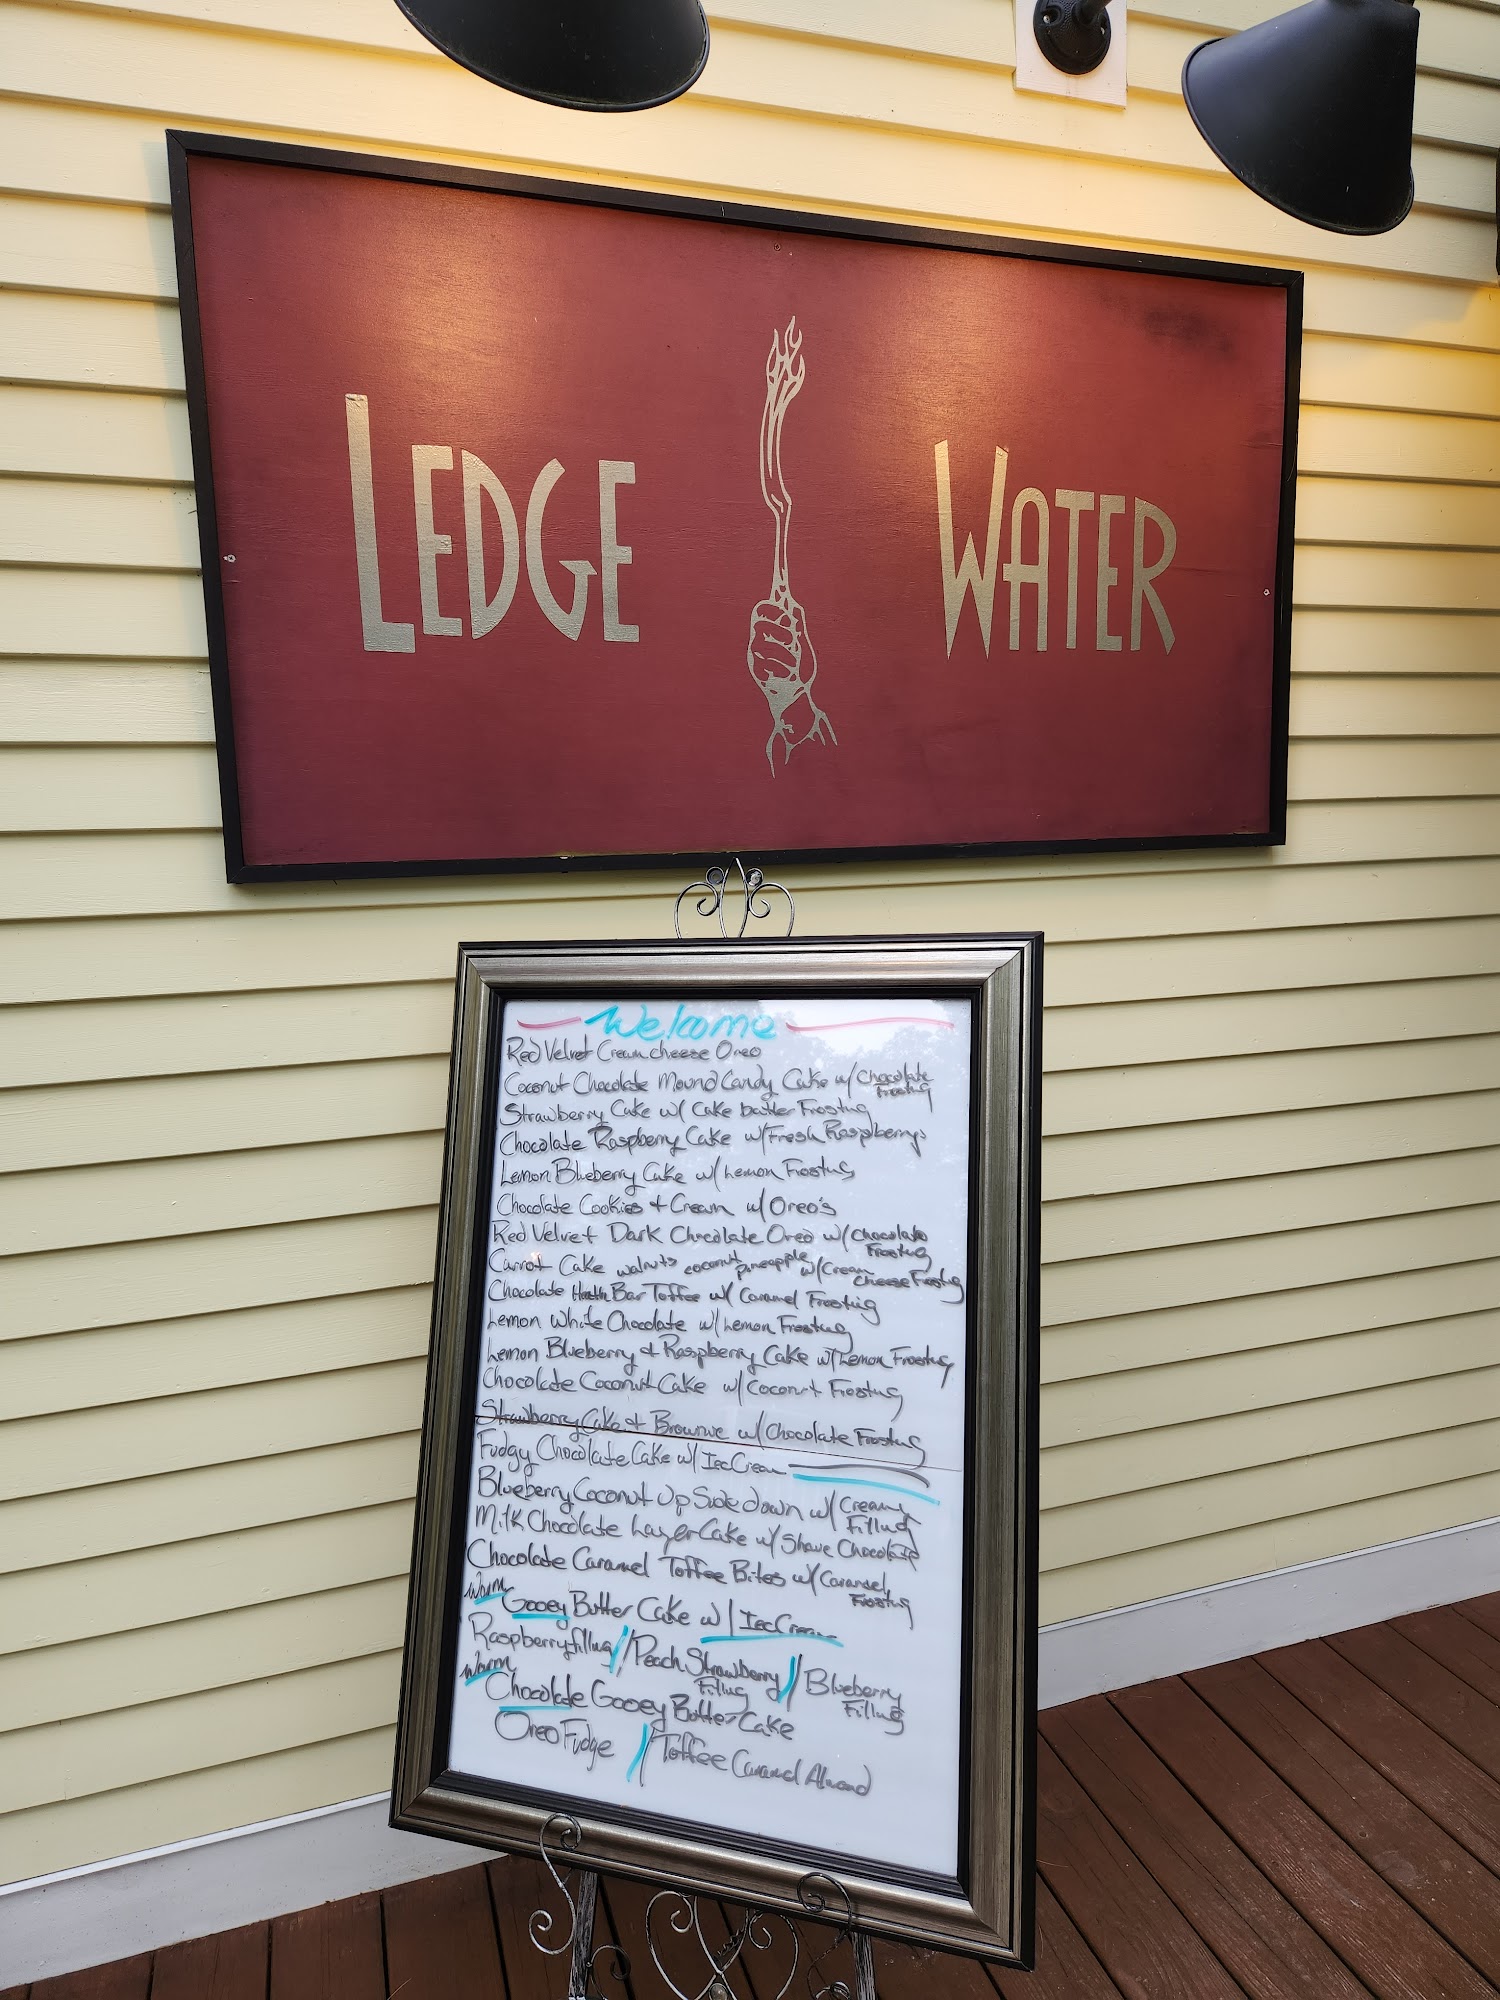 LEDGE WATER
Welcome
Red Velvet Creamcheese Oreo
Coconut Chocolate Mound Candy Cake w/ Chocolate Frosting
Strawberry Cake w/ Cake batter Frosting
Chocolate Raspberry Cake w/ Fresh Raspberrys
Lemon Blueberry Cake w/ Lemon Frosting
Chocolate Cookies + Cream w/ Oreo's
Red Velvet Dark Chocolate Oreo w/ Chocolate Frosting
Carrot Cake walnuts coconut pineapple w/ Cream Cheese Frosting
Chocolate Heath Bar Toffee w/ Caramel Frosting
Lemon White Chocolate w/ Lemon Frosting
Lemon Blueberry + Raspberry Cake w/ Lemon Frosting
Chocolate Coconut Cake w/ Coconut Frosting
Strawberry Cake + Brownie w/ Chocolate Frosting
Fudgy Chocolate Cake w/ Ice Cream
Blueberry Coconut Up Side down w/ Creamy Filling
Milk Chocolate Layer Cake w/ Shave Chocolate
Chocolate Caramel Toffee Bites w/ Caramel Frosting
Warm Gooey Butter Cake w/ Ice Cream
Raspberry filling // Peach Strawberry Filling // Blueberry Filling
Warm Chocolate Gooey Butter Cake
Oreo Fudge // Toffee Caramel Almond